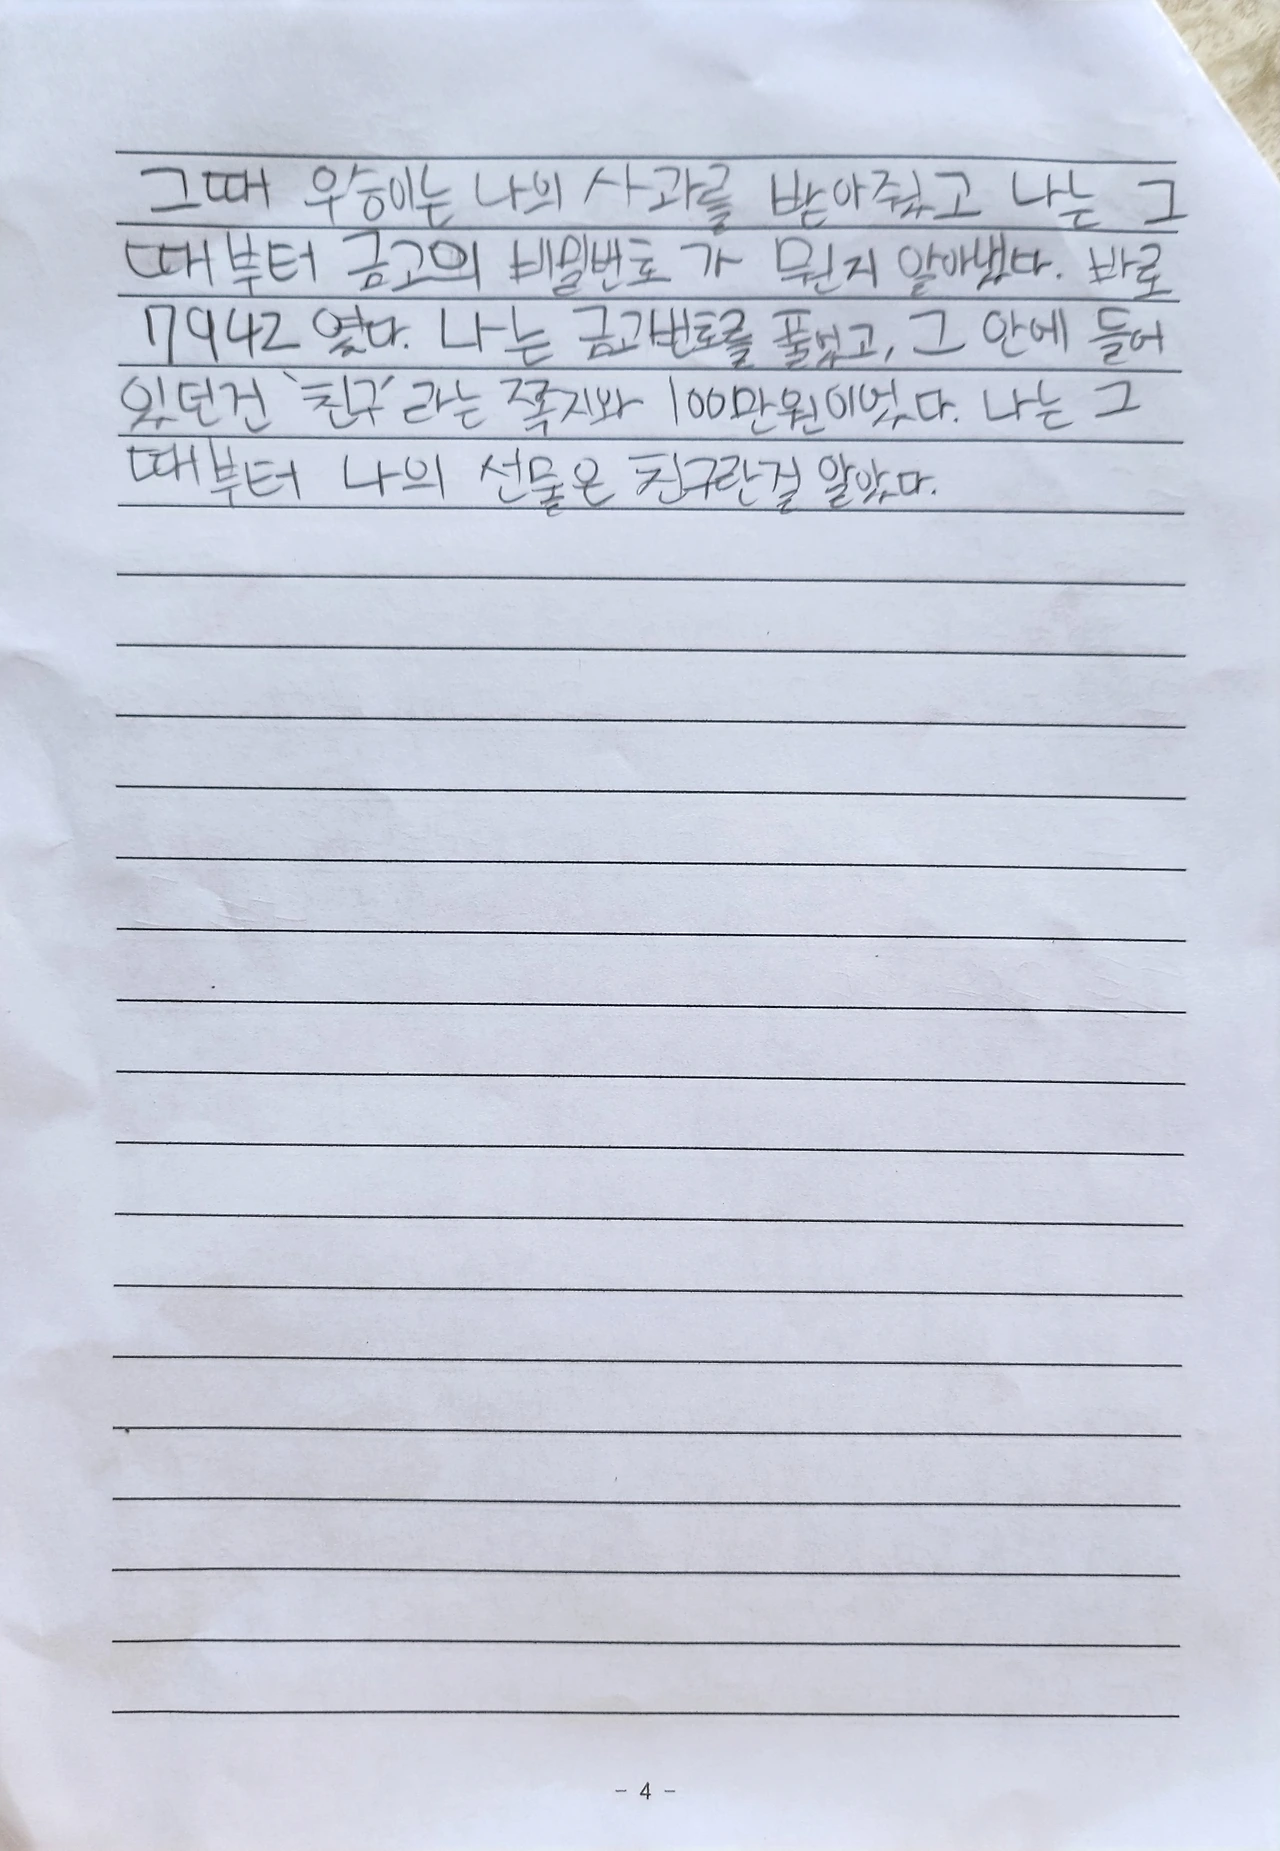 그때 우승이는 나의 사과를 받아주었고 나는 그
때부터 금고의 비밀번호 가 뭔지 알아냈다. 바로
7942 였다. 나는 금고번호를 풀었고, 그 안에 들어
있던건 '친구'라는 쪽지와 100만원이었다. 나는 그
때부터 나의 선물은 친구란걸 알았다.
- 4 -